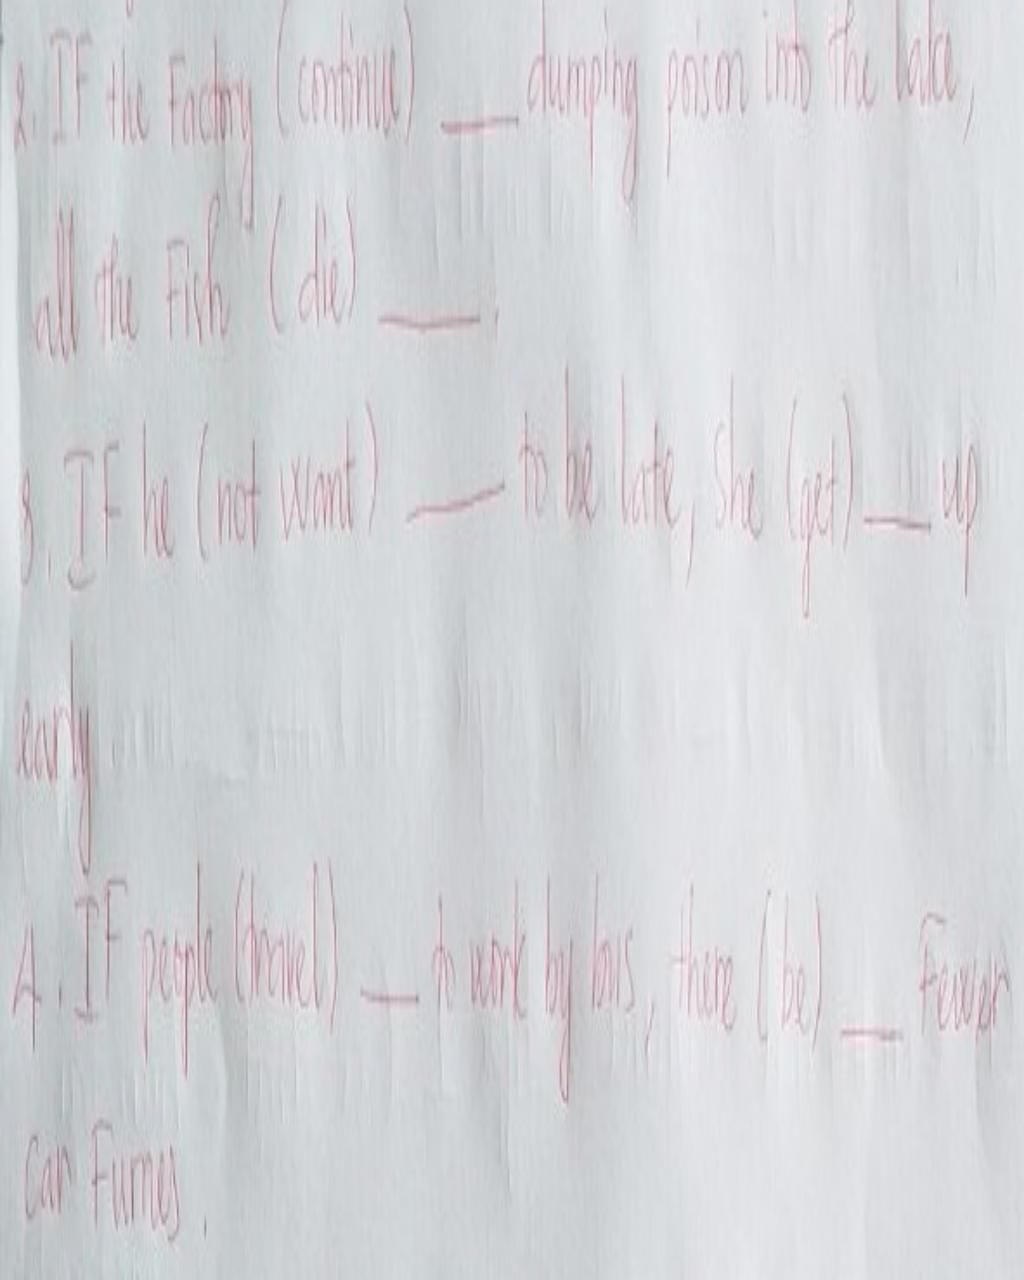 2. IF the Factory (continue) ___ dumping poison into the lake,
all the Fish (die) ___.
3. IF he (not want) ___ to be late, she (get) ___ up
early.
4. IF people (travel) ___ to work by bus, there (be) ___ Fewer
car Fumes.